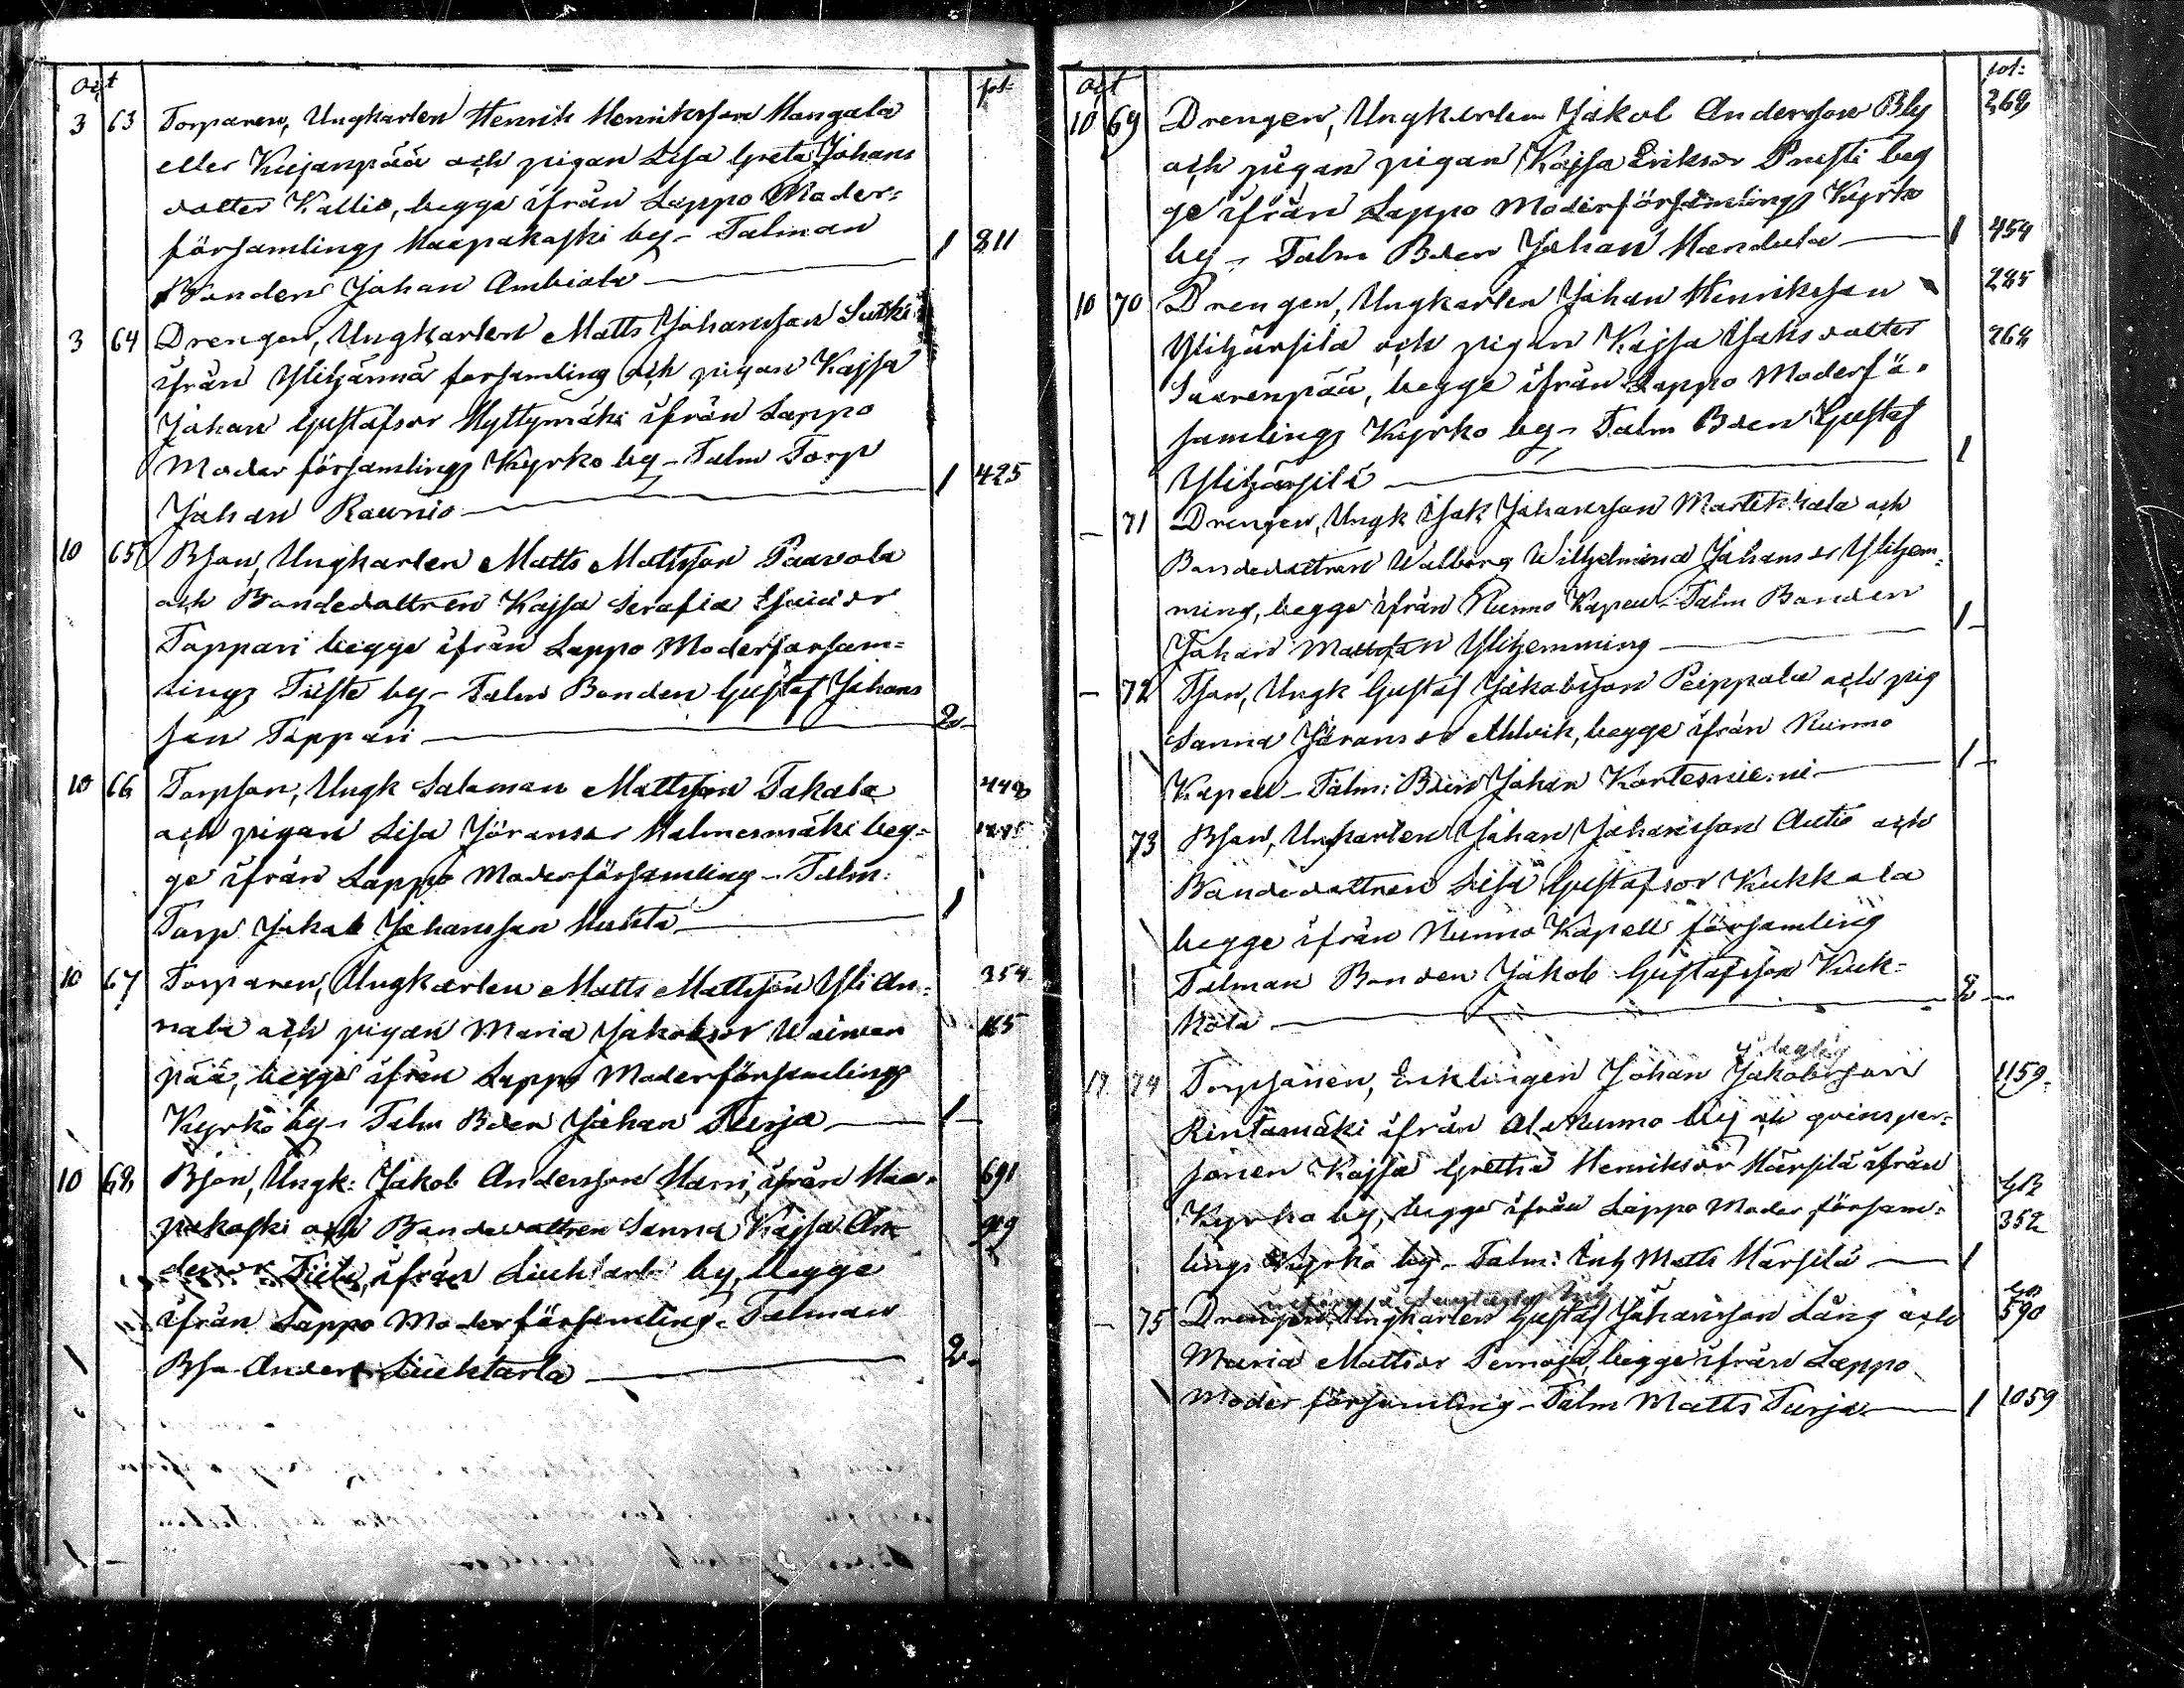 Oct fol:
3 63 Torparen, Ungkarlen Henrik Henriksson Hangala
eller Kujanpää och pigan Lisa Greta Johans
dotter Kallio, begge ifrån Lappo Moder=
församlings Haapakoski by – Talman
Bonden Johan Ambiala 1 811
3 64 Drengen, Ungkarlen Matts Johansson Sutki
ifrån Ylihärmä forsamling och pigan Kajsa
Johan Gustafsdr Myttymäki ifrån Lappo
Moder församlings Kyrko by – Talm Torp
Johan Raunio 1 425
10 65 Bson, Ungkarlen Matts Mattsson Paavola
och Bondedottren Kajsa Serafia dr
Tappari begge ifrån Lappo Moderforsam=
lings Tiisте by – Talm Bonden Gustaf Johans
son Tappari 2
10 66 Torpson, Ungk Saloman Mattsson Takala 448
och pigan Lisa Jöransdr Malmesmäki beg=
ge ifrån Lappo Moderförsamling – Talm:
Torp Jakob Johansson Huhta 1
10 67 Torparen, Ungkarlen Matts Mattsson Yli An= 354
nala och pigan Maria Jakobsdr Wainion 165
pää, begge ifrån Lappo Moderförsamlings
Kyrko by – Talm Bden Johan Turja 1
10 68 Bson, Ungk: Jakob Andersson Harri, ifrån Haa= 691
pakoski och Bondedottren Sanna Kajsa An
dersdr ifrån Liuhtari by, begge
ifrån Lappo Moderförsamling – Talman
Bsn Anders Liuhtarla 2
Oct fol:
10 69 Drengen, Ungkarlen Jakob Andersson Bly 368
och pigan pigan Kajsa Eriksdr Prusti beg
ge ifrån Lappo Moderförsamlings Kyrko
by – Talm Bden Johan Handula 1 454
10 70 Drengen, Ungkarlen Johan Henriksson 285
Ylihärsilä och pigan Kajsa Isaksdotter 264
Saarenpää, begge ifrån Lappo Moderfö=
samlings Kyrko by – Talm Bden Gustaf
Ylihärsilä 1
– 71 Drengen, Ungk Isak Johansson Martikkala och
Bondedottren Walborg Wilhelmina Johansdr Ylihem=
ming, begge ifrån Nurmo Kapell – Talm Bonden
Johan Mattsson Ylihemming 1
– 72 Tson, Ungk Gustaf Jakobsson Peippala och pig
Sanna Jöransdr Ahlvik, begge ifrån Nurmo
Kapell – Talm: Bden Johan Kortesniemi 1
73 Bson, Ungkarlen Johan Johansson Autio och
Bondedottren Lisa Gustafsdr Kukkola
begge ifrån Nurmo Kapell församling
Talman Bonden Jakob Gustafsson Kuk=
kola 2
17 74 Torpsonen, Enklingen Johan Jakobsson 1159
Rintamäki ifrån Alanurmo by och qvinsper=
sonen Kajsa Gretha Henriksdr Härsilä ifrån
Kyrko by, begge ifrån Lappo Moder försam= 352
lings Kyrko by – Talm: Inh Matts Härsilä 1
– 75 Drengen, Ungkarlen Gustaf Johansson Lång och 590
Maria Mattsdr Pernaja, begge ifrån Lappo
Moder församling – Talm Matts Turja 1 1059